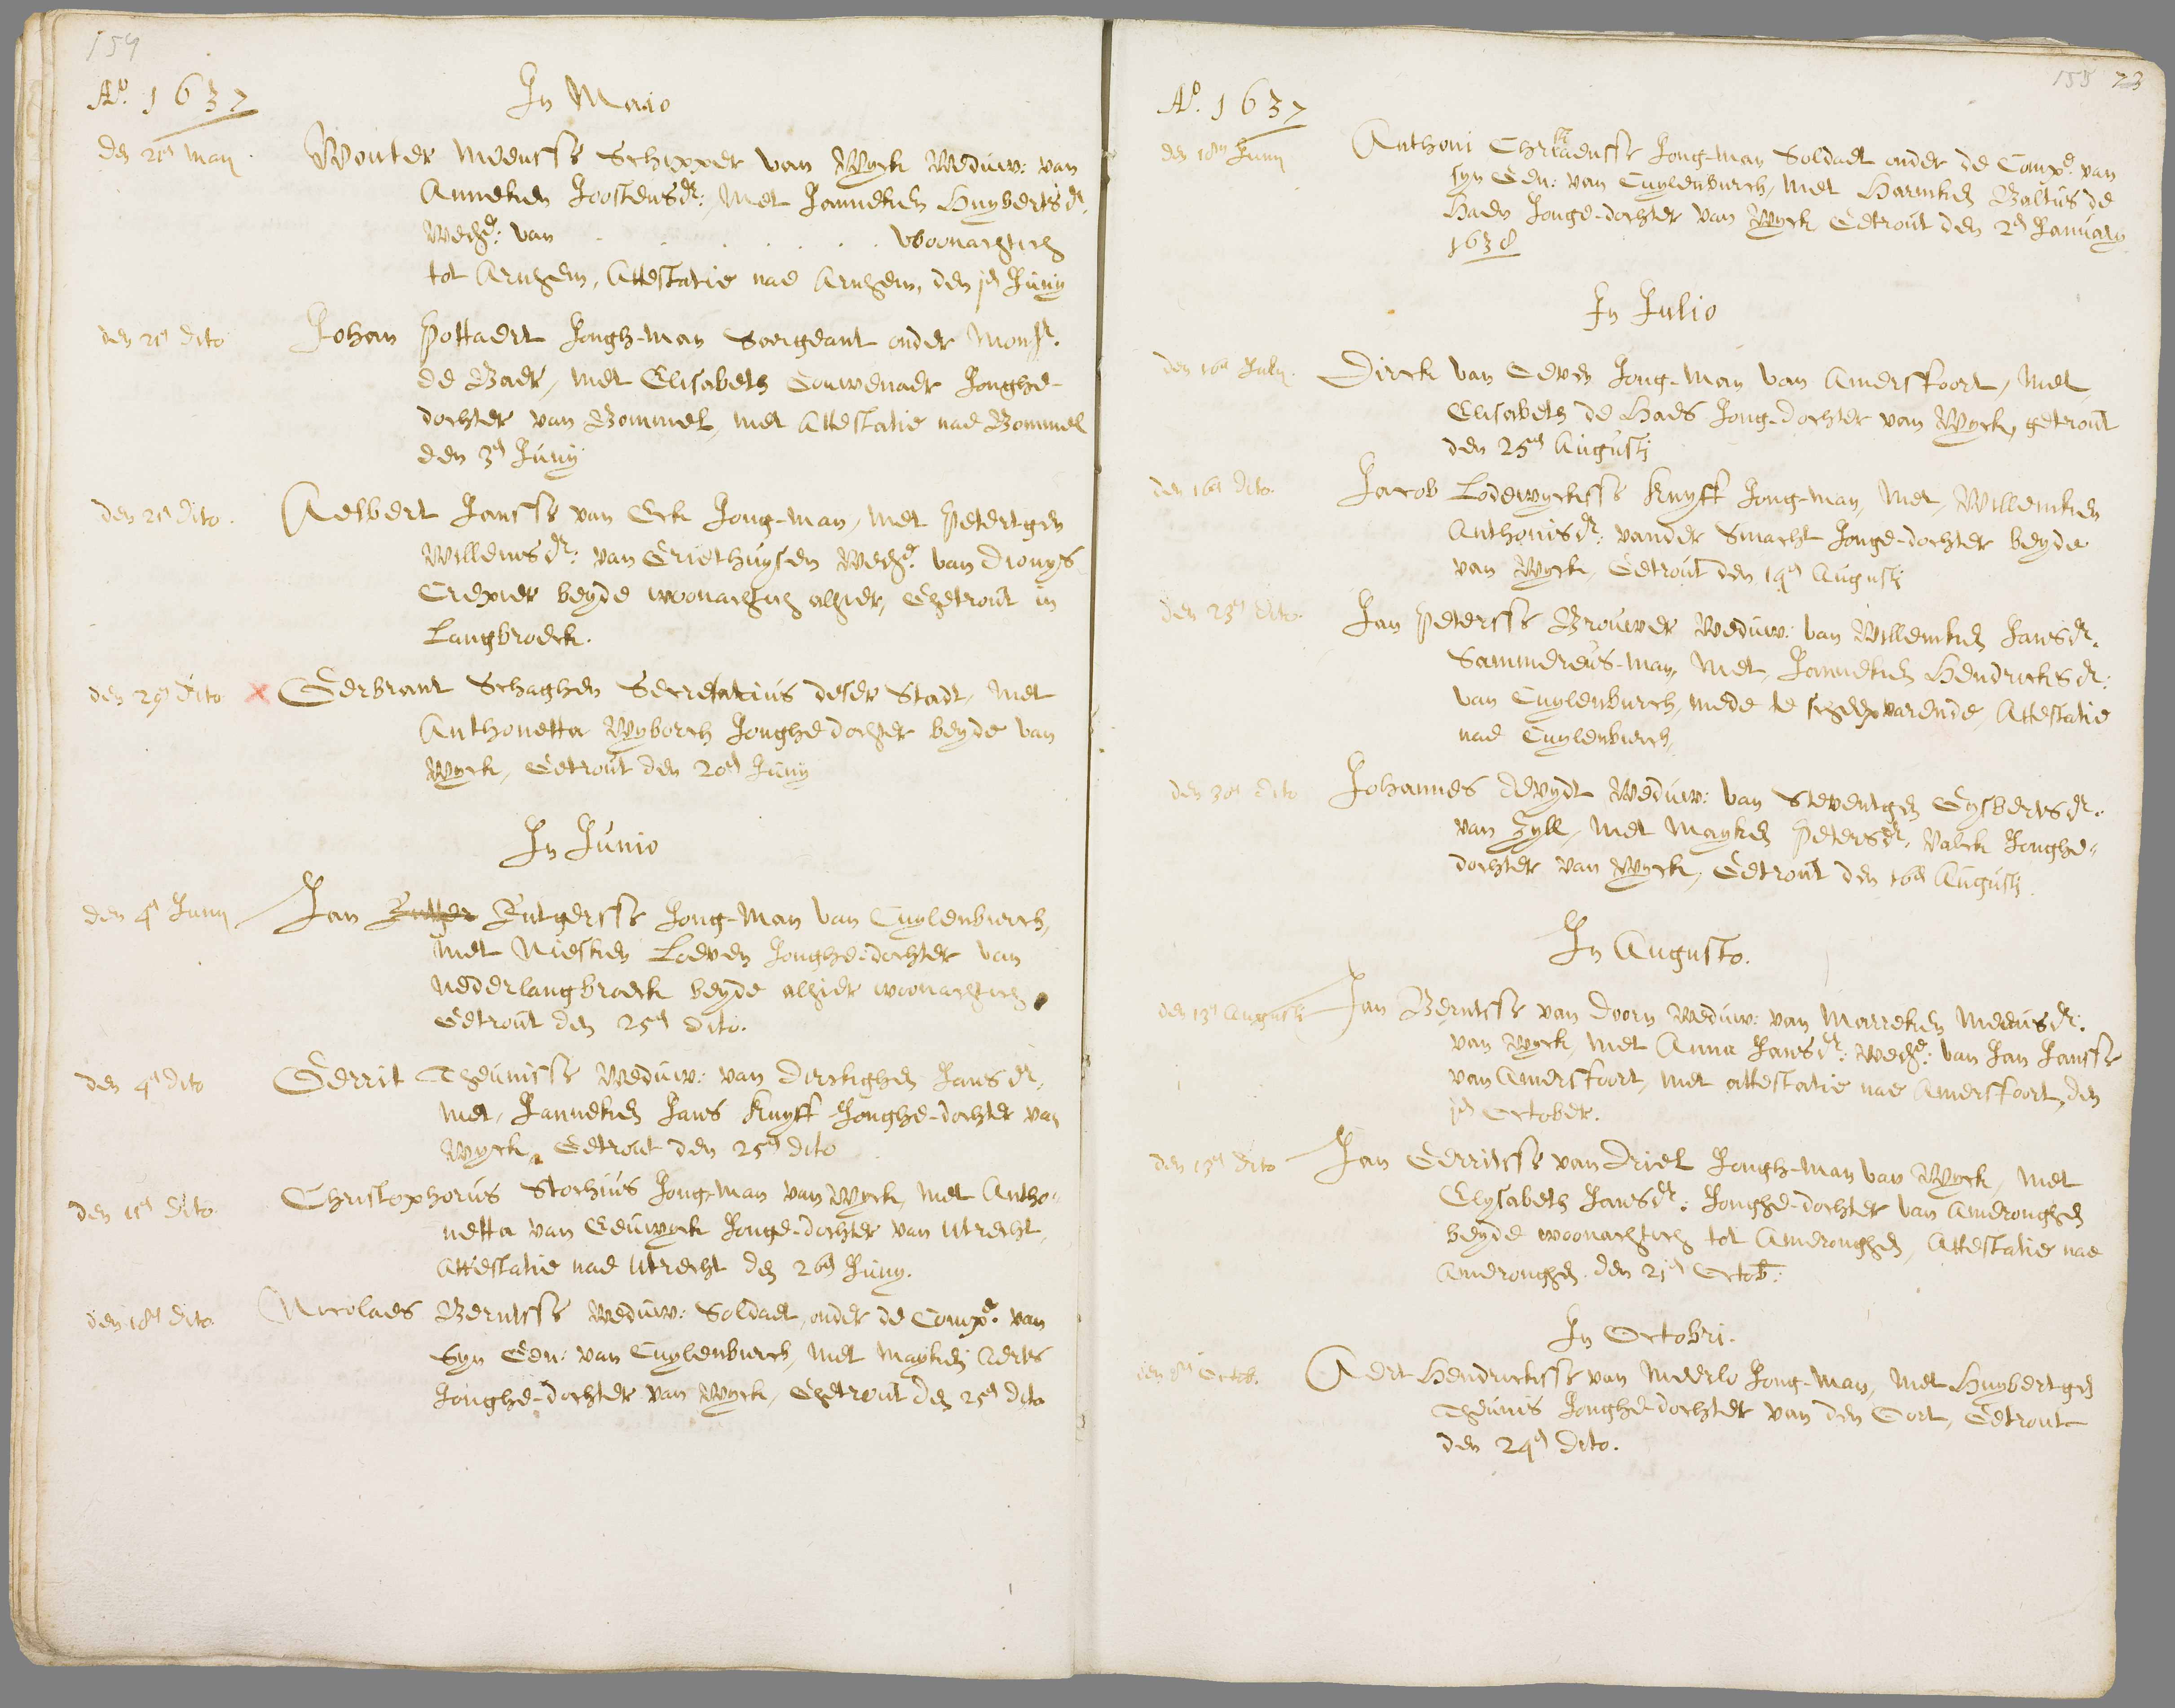 154
Aº. 1637
In Maio
den 21en May.
Wouter Meeusse Schipper van Wyck Weduw: van
Anneken Joostensdr: met Janneken Huybertsdr.
Wede: van . . . . . . woonachtich
tot Arnhem, Attestatie nae Arnhem, den jen Juny
den 21en dito
Johan Pottaert Jongh-man Sergeant onder Monsr.
de Baer, met Elisabeth Couwenaer Jonghe-
dochter van Bommel, met Attestatie nae Bommel
den 3en Juny
den 21en dito.
Aelbert Jansse van Eck Jong-man, met Petertgen
Willemsdr: van Griethuysen Wede: van Dionys
Crexier beyde woonachtich alhier, Ghetrout in
Langbroeck.
den 29en dito
Gerbrant Schaghen Secretarius deser Stadt, met
Anthonetta Wyborch Jonghe dochter beyde van
Wyck, Getrout den 20en Juny
In Junio
den 4en Juny
Jan Rutger Rutgersse Jong-Man van Cuylenburch,
met Niesken Loeven Jonghe-dochter van
Nederlangbroeck beyde alhier woonachtich
Getrout den 25en dito.
den 4en dito
Gerrit Theunisse Weduw: van Dirckighen Jansdr,
met, Janneken Jans Knyff Jonghe-dochter van
Wyck, Getrout den 25en dito
den 11en dito
Christophorus Stochius Jong-man van Wyck, met Antho-
netta van Eeuwyck Jonge-dochter van Utrecht,
Attestatie nae Utrecht den 26en Juny.
den 18en dito
Nicolaes Berntsse Weduw: Soldaet, onder de Compe. van
Syn Gen: van Cuylenburch, met Mayken Aerts
Jonghe-dochter van Wyck, Ghetrout den 25en dito
155 23
Aº. 1637
den 18en Juny
Anthoni Christiaensse Jong-man Soldaet onder de Compe. van
syn Gen: van Cuylenburch, met Harmken Baltus de
Haen Jonge-dochter van Wyck Getrout den 2en January
1638
In Julio
den 16en July.
Dirck van Eeven Jong-Man van Amersfoort, met
Elisabeth de Haes Jong-dochter van Wyck, getrout
den 25en Augusti
den 16en dito.
Jacob Lodewyckesse Knyff Jong-man, met, Willemken
Anthonisdr: vander Smacht Jonge-dochter beyde
van Wyck, Getrout den 19en Augusti
den 23en dito.
Jan Petersse Brouwer Weduw: van Willemken Jansdr.
Sammereus-man, met, Janneken Hendricksdr:
van Cuylenburch, mede te scheepvarende, Attestatie
nae Cuylenburch.
den 30en dito
Johannes Devydt Weduw: van Steventgen Gysbertsdr.
van Zyll, met Mayken Petersdr. Valck Jonghe-
dochter van Wyck, Getrout den 16en Augusti.
In Augusto.
den 13en Augusti
Jan Berntsse van Doorn Weduw: van Marreken Meeusdr.
van Wyck, met Anna Jansdr: Wede: van Jan Jansse
van Amersfoort, met attestatie nae Amersfoort, den
jen October.
den 13en dito
Jan Gerritsse van Driel Jongh-man van Wyck, met
Elysabeth Jansdr: Jonghe-dochter van Ameronghen
beyde woonachtich tot Ameronghen, Attestatie nae
Ameronghen. den 21en Octob:
In Octobri.
den 8en Octob.
Aert Hendrickesse van Meerlo Jong-man, met Huybertgen
Theunis Jonghe-dochter van den Oort, Getrout
den 29en dito.